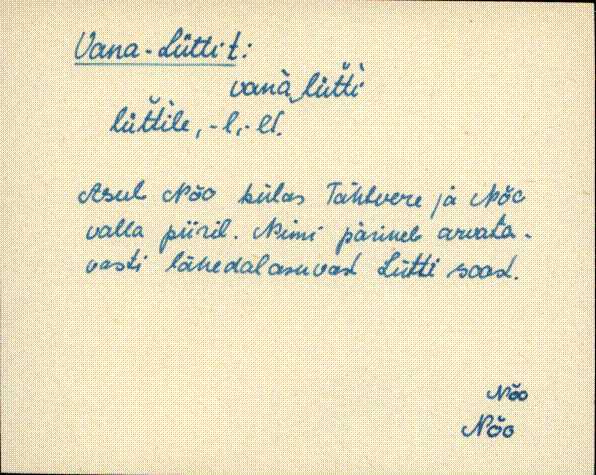 Vana-Lütti t:
vanà lüt̆ti
lüt̆tile, -l, -lt.
Asub Nõo külas Tähtvere ja Nõo
valla piiril. Nimi pärineb arvata-
vasti lähedalasuvast Lütti soost.
Nõo
Nõo